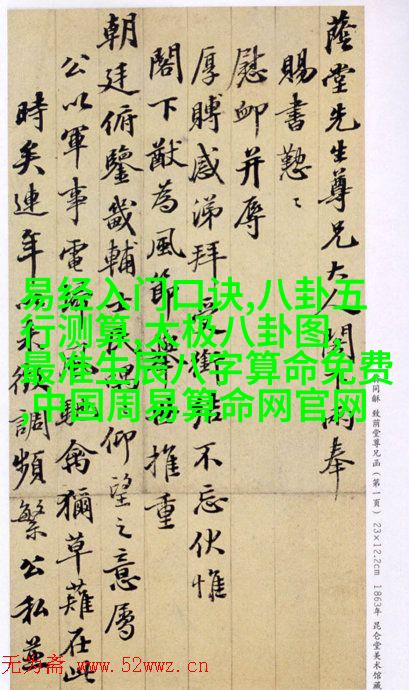 蔭堂先生尊兄大人閣下兩奉
賜書懃〻
慰卹并辱
厚賻感涕拜登銜結不忘伏惟
閣下猷為風節推重
朝廷俯鑒畿輔士民仰望之意屬
公以軍事電馳禽獮草薙在此
時矣連年以來徵調頻繁公私並
易经入门口诀,八卦五
行测算,太极八卦图,
最准生辰八字算命免费
,中国周易算命网官网
同龢 致荫堂尊兄函(第一页) 23×12.2cm 1863年 昆仑堂美术馆藏
无为斋 www.52wwz.cn